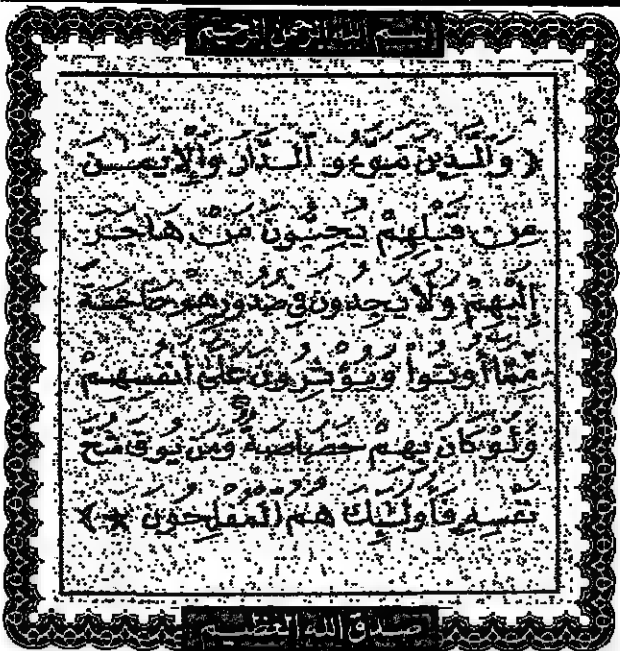 بسم الله الرحمن الرحيم
﴿ وَالَّذِينَ تَبَوَّءُو الدَّارَ وَالْإِيمَٰنَ
مِن قَبْلِهِمْ يُحِبُّونَ مَنْ هَاجَرَ
إِلَيْهِمْ وَلَا يَجِدُونَ فِي صُدُورِهِمْ حَاجَةً
مِّمَّا أُوتُوا۟ وَيُؤْثِرُونَ عَلَىٰ أَنفُسِهِمْ
وَلَوْ كَانَ بِهِمْ خَصَاصَةٌ وَمَن يُوقَ شُحَّ
نَفْسِهِ فَأُولَٰئِكَ هُمُ الْمُفْلِحُونَ * ﴾
صدق الله العظيم